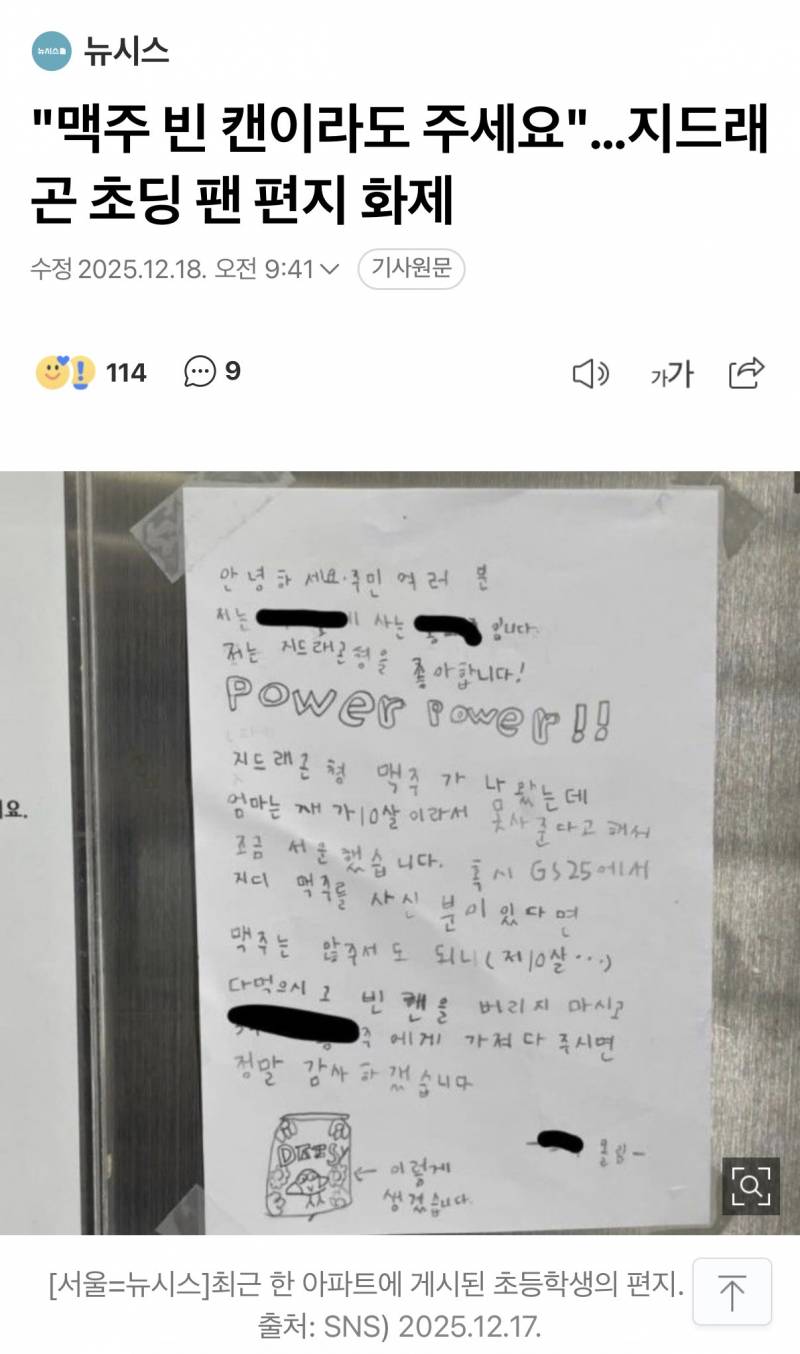 뉴시스
"맥주 빈 캔이라도 주세요"...지드래
곤 초딩 팬 편지 화제
수정 2025.12.18. 오전 9:41
기사원문
114
9
가가
안녕하세요.주민 여러 분
저는 사는 입니다.
저는 지드래곤형을 좋아합니다!
POWER POWER!!
지드래곤 형 맥주가 나왔는데
엄마는 제가10살이라서 못사준다고 해서
조금 서운했습니다. 혹시 GS25에서
지디 맥주를 사신 분이 있다면
맥주는 않주서도 되니(제10살...)
다먹으시고 빈 캔을 버리지 마시고
에게 가져다 주시면
정말 감사하겠습니다
이렇게
생겼습니다.
올림-
요.
[서울=뉴시스]최근 한 아파트에 게시된 초등학생의 편지.
출처: SNS) 2025.12.17.